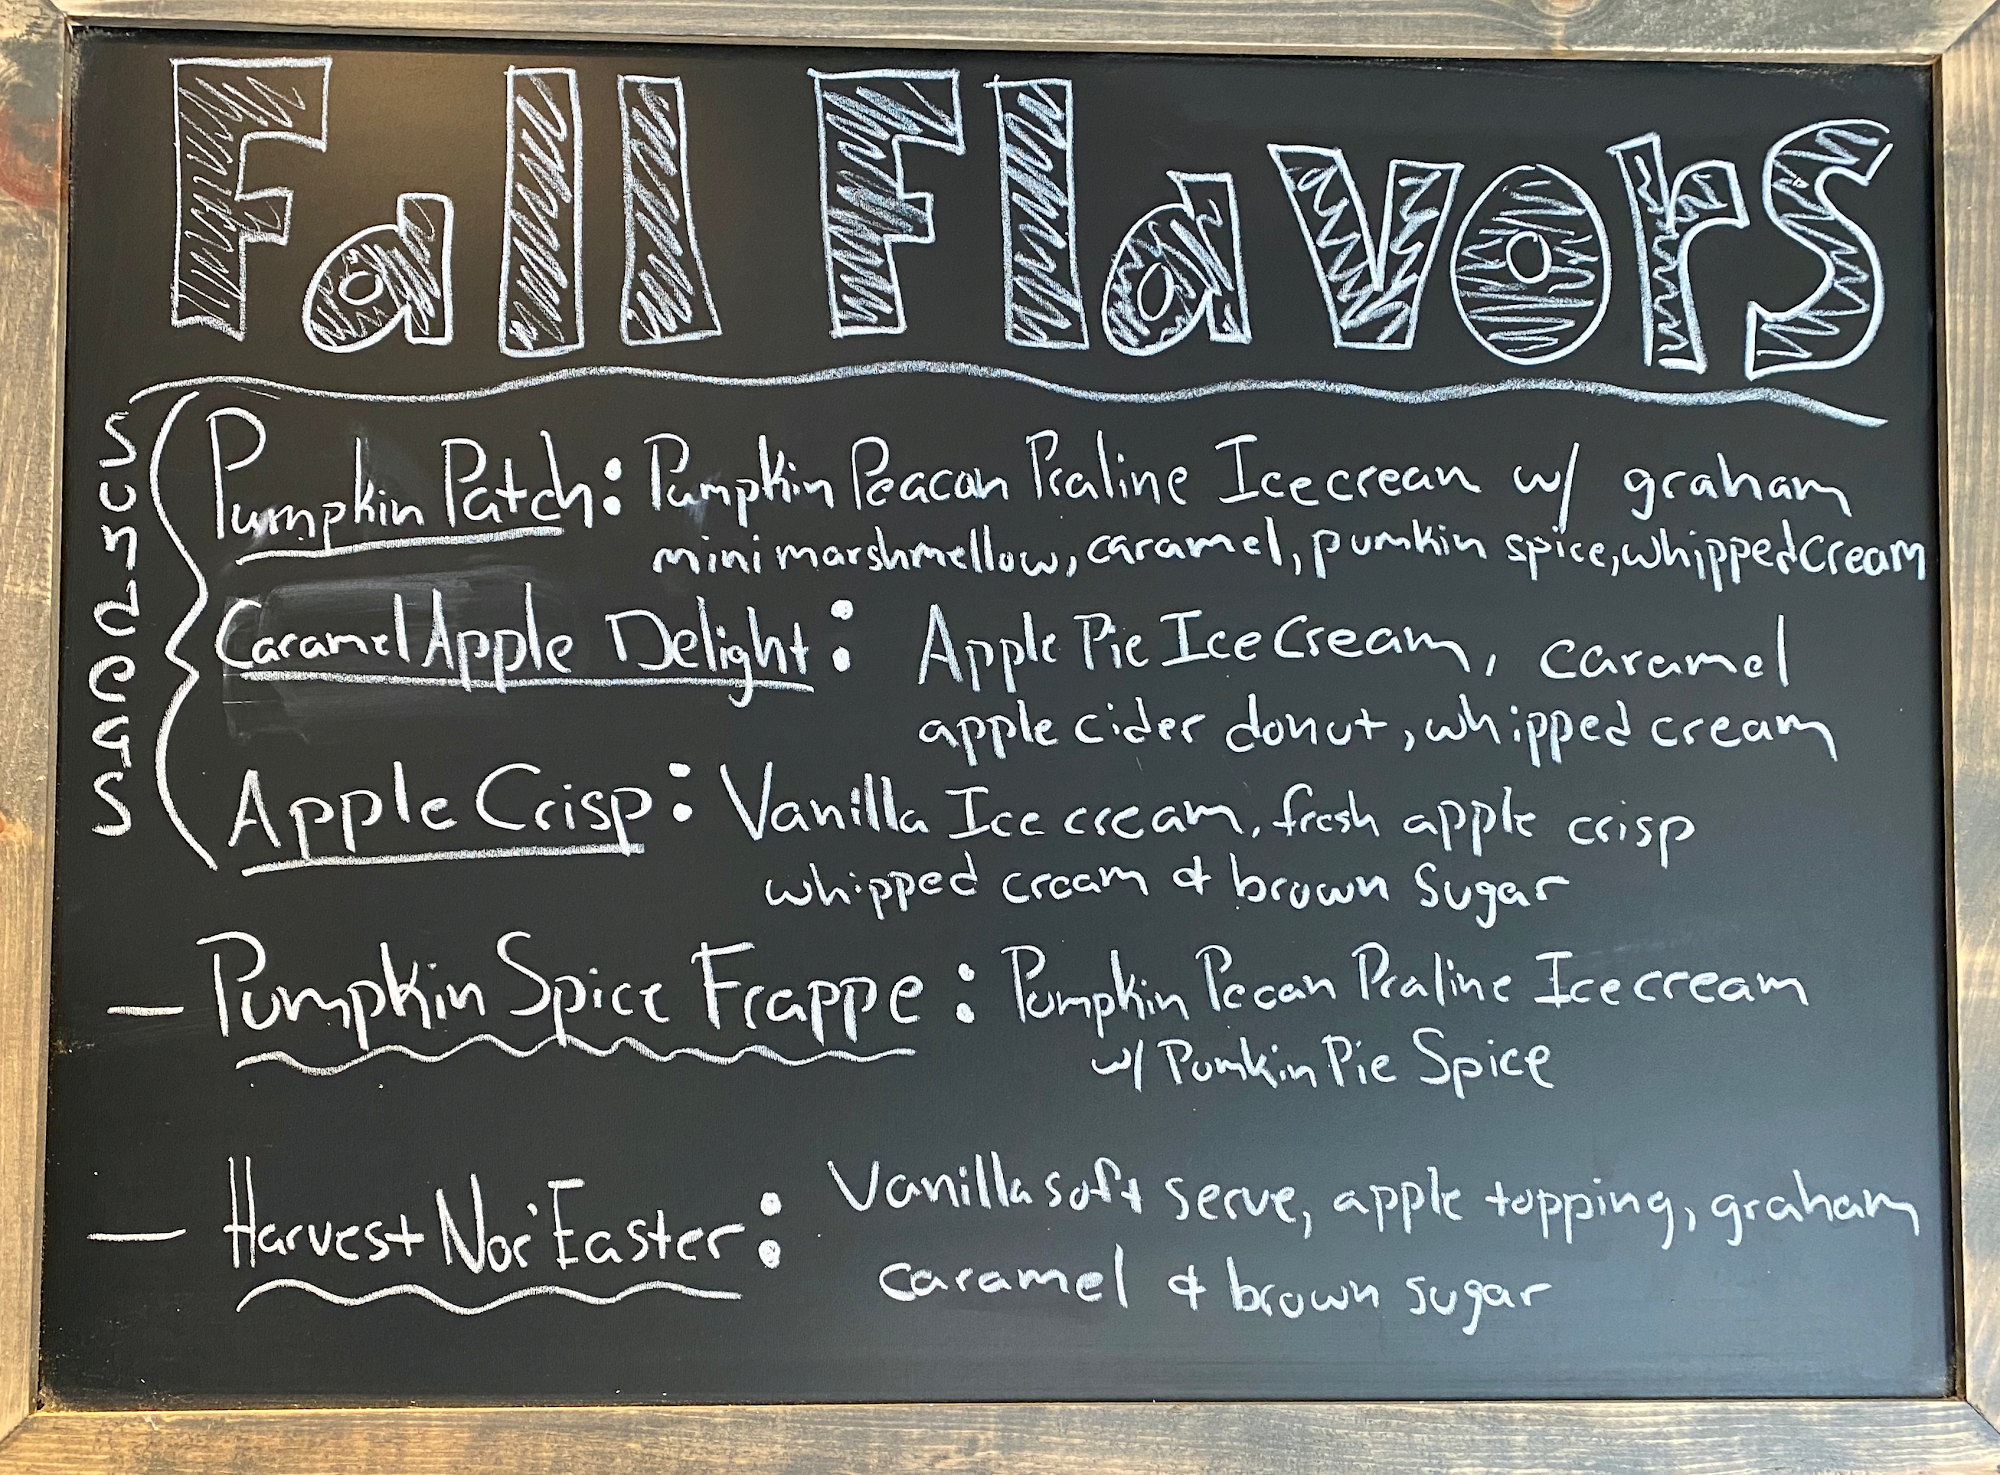 Fall Flavors
Sundaes
Pumpkin Patch: Pumpkin Peacan Praline Icecrean w/ graham
mini marshmellow, caramel, pumkin spice, whipped cream
Caramel Apple Delight: Apple Pie Ice Cream, caramel
apple cider donut, whipped cream
Apple Crisp: Vanilla Ice cream, fresh apple crisp
whipped cream & brown sugar
— Pumpkin Spice Frappe: Pumpkin Pecan Praline Icecream
w/ Pumkin Pie Spice
— Harvest Nor'Easter: Vanilla soft serve, apple topping, graham
caramel & brown sugar